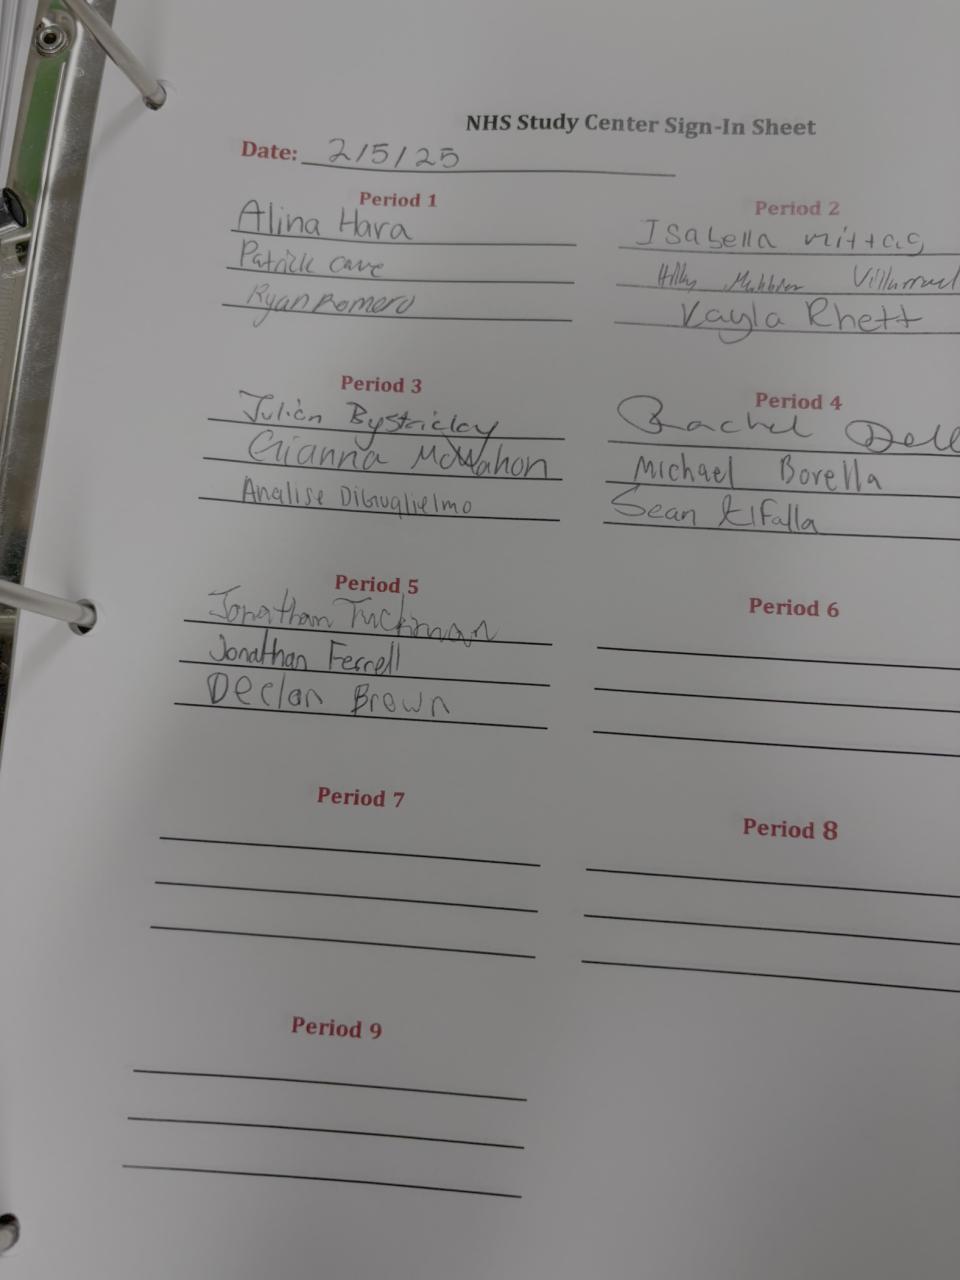 NHS Study Center Sign-In Sheet
Date: 2/5/25
Period 1
Alina Hara
Patrick Cave
Ryan Romero
Period 2
Isabella Mittag
Kayla Rhett
Period 3
Julian Bystricky
Gianna McMahon
Analise DiGuglielmo
Period 4
Rachel
Michael Borella
Sean Elfalla
Period 5
Jonathan Tuckman
Jonathan Ferrell
Declan Brown
Period 6
Period 7
Period 8
Period 9